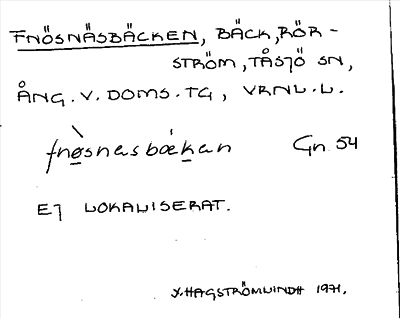 FNÖSNÄSBÄCKEN, BÄCK, RÖR-
STRÖM, TÅSJÖ SN,
ÅNG. V. DOMS. TG, VRNL. L.
fnòsnasbækan Gn 54
EJ LOKALISERAT.
Y. HAGSTRÖMLINDH 1971.